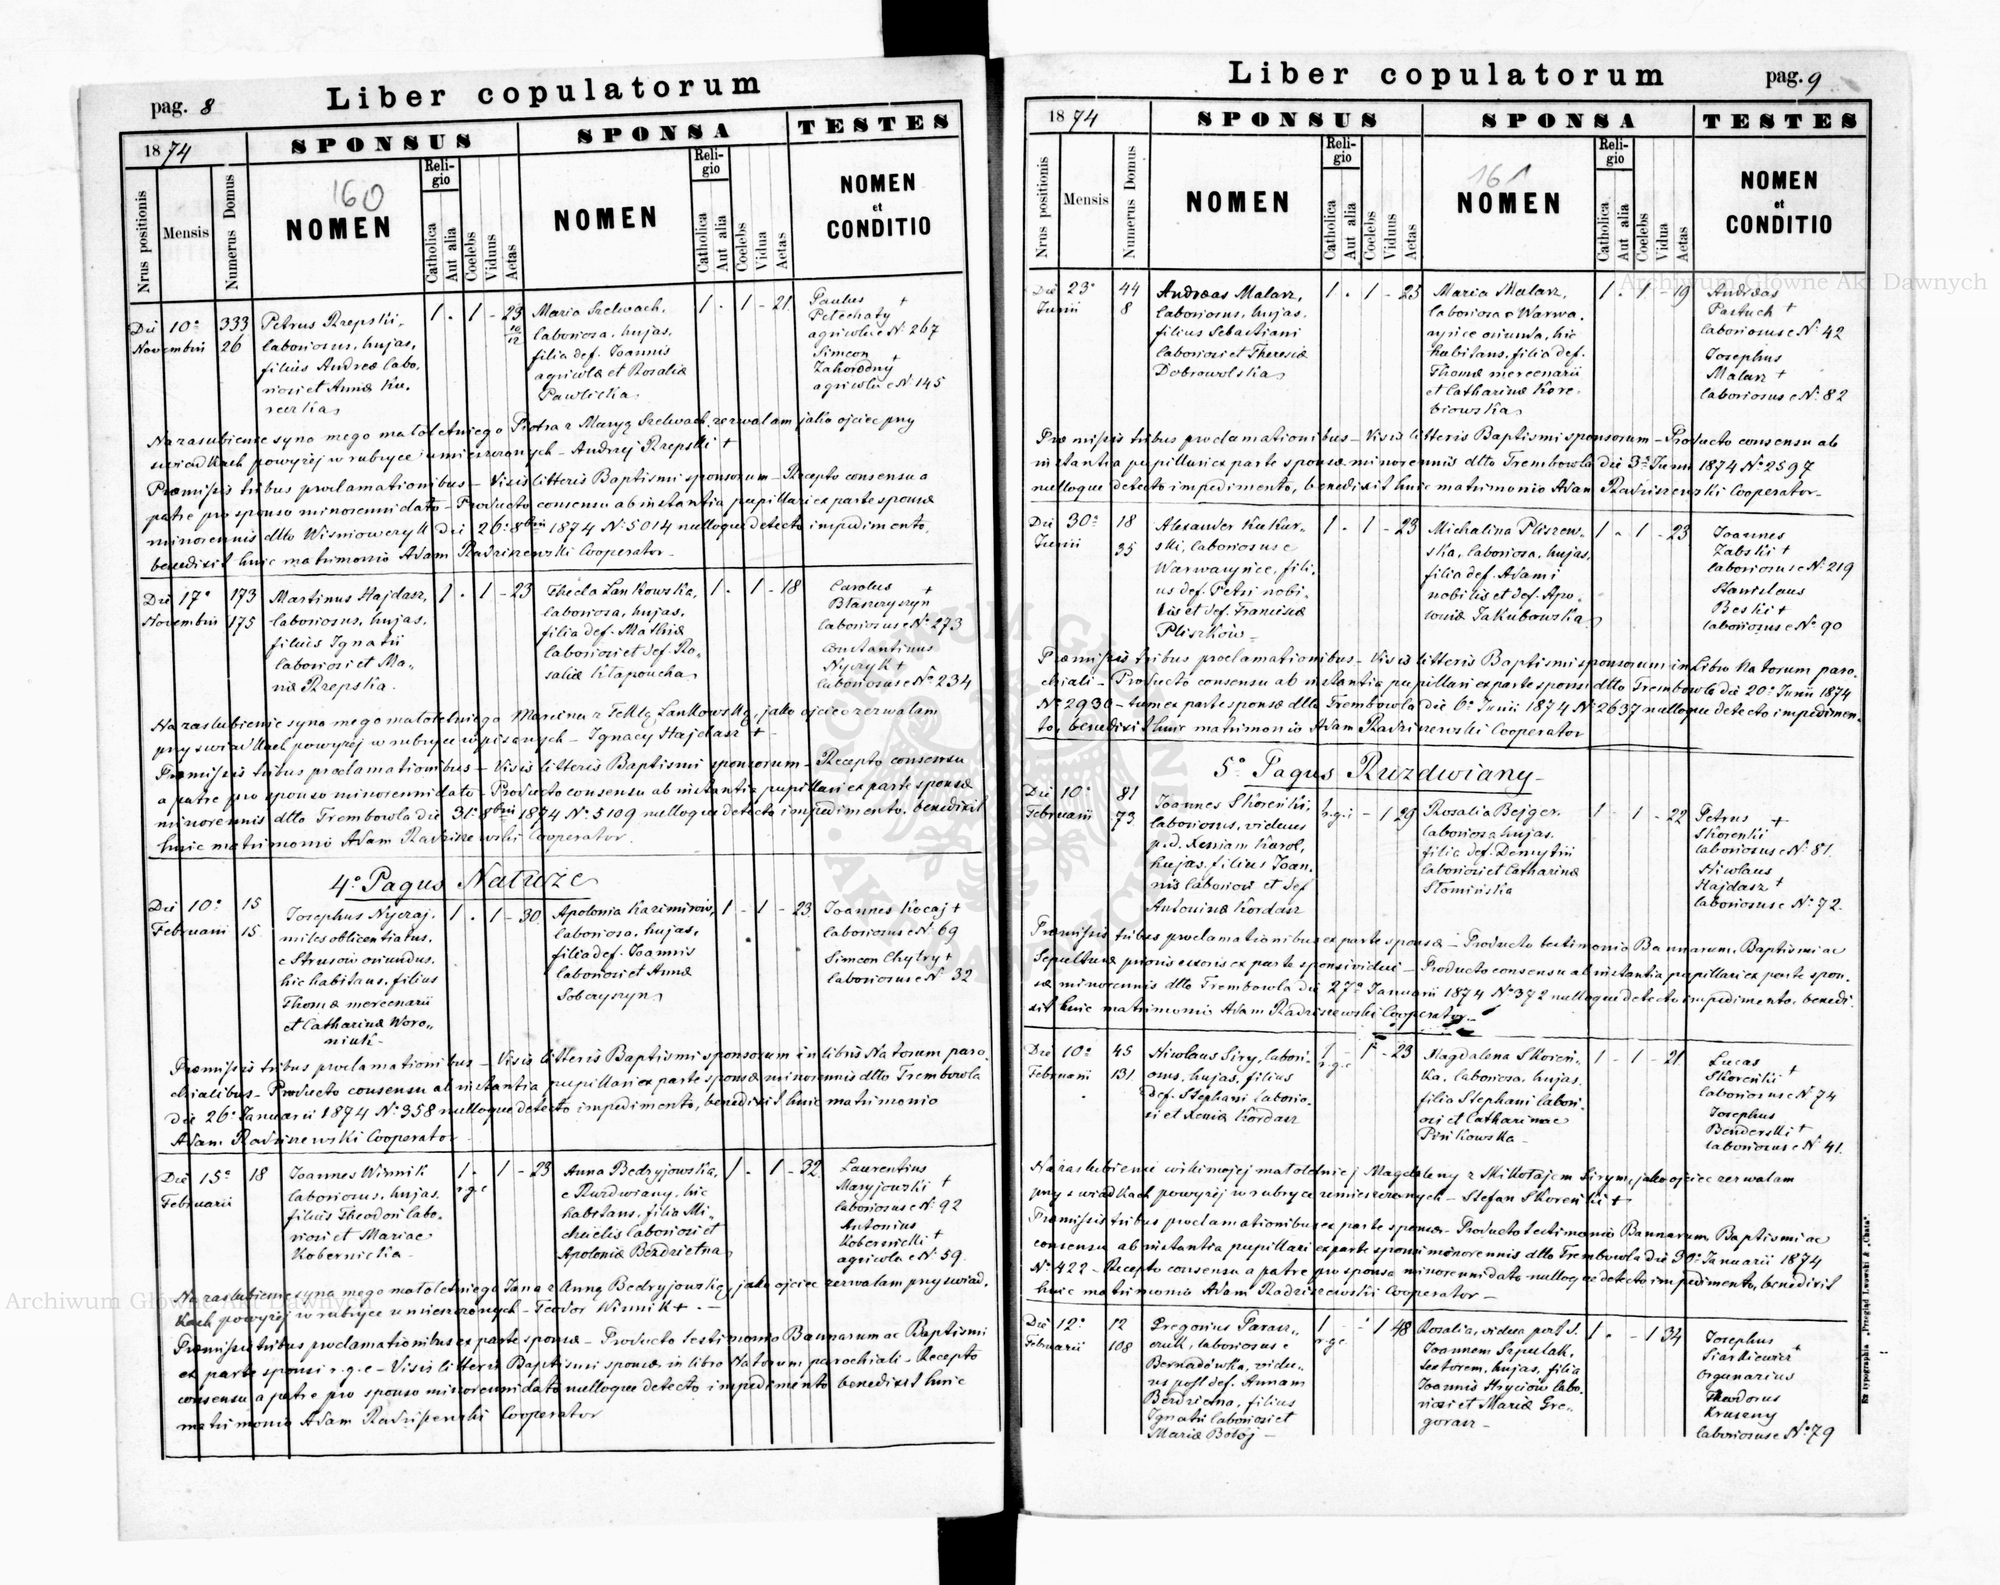 pag. 8
Liber copulatorum
1874
SPONSUS
SPONSA
TESTES
Nrus positionis
Mensis
Numerus Domus
160
NOMEN
Religio
Catholica
Aut alia
Coelebs
Viduus
Aetas
NOMEN
Religio
Catholica
Aut alia
Coelebs
Vidua
Aetas
NOMEN
et
CONDITIO
Die 10ª
Novembris
333
26
Petrus Rzepski,
laboriosus, hujas,
filius Andreæ labo,
riosi et Annæ Ku,
rczka
1 . 1 - 23
10
12
Maria Szelwach,
laboriosa, hujas,
filia def. Joannis
agricolæ et Rosaliæ
Pawlicka
1 . 1 - 21
Paulus +
Petechaty
agricola e Nº 267
Simeon +
Zahorodny
agricola e Nº 145
Na zaslubienie syna mego małoletniego Piotra z Maryą Szelwach, zezwalam jako ojciec przy
swiadkach powyżej w rubryce umieszczonych - Andrzej Rzepski +
Præmissis tribus proclamationibus - Visis litteris Baptismi sponsorum - Recepto consensu a
patre pro sponso minorenni dato - Producto consensu ab instantia pupillari ex parte sponsæ
minorennis dtto Wisniowczyk die 26ª 8bris 1874 Nº 5014 nulloque detecto impedimento,
benedixit huic matrimonio Adam Radziszewski Cooperator -
Die 17ª
Novembris
173
175
Martinus Hajdasz,
laboriosus, hujas,
filius Ignatii
laboriosi et Ma-
riæ Rzepska.
1 . 1 - 23
Thecla Lankowska,
laboriosa, hujas,
filia def. Mathiæ
laboriosi et def. Ro-
saliæ Kłapoucha
1 . 1 - 18
Carolus +
Błaszczyszyn
laboriosus e Nº 273
Constantinus
Nyczyk +
laboriosus e Nº 234
Na zaslubienie syna mego małoletniego Marcina z Teklą Lankowską, jako ojciec zezwalam
przy swiadkach powyżej w rubryce wpisanych - Ignacy Hajdasz +
Præmissis tribus proclamationibus - Visis litteris Baptismi sponsorum - Recepto consensu
a patre pro sponso minorenni dato - Producto consensu ab instantia pupillari ex parte sponsæ
minorennis dtto Trembowla die 31ª 8bris 1874 Nº 5109 nulloque detecto impedimento, benedixit
huic matrimonio Adam Radziszewski Cooperator.
4º Pagus Natuże
Die 10ª
Februarii
15
15
Josephus Nyczaj,
miles oblicentiatus,
e Strusów oriundus,
hic habitans, filius
Thomæ mercenarii
et Catharinæ Woro-
niuk -
1 . 1 - 30
Apolonia Kazimirów,
laboriosa, hujas,
filia def. Joannis
laboriosi et Annæ
Sobczyszyn
1 - 1 - 23
Joannes Kocaj +
laboriosus e Nº 69
Simeon Chytry +
laboriosus e Nº 32
Præmissis tribus proclamationibus - Visis litteris Baptismi sponsorum in libris Natorum paro,
chialibus - Producto consensu ab instantia pupillari ex parte sponsæ minorennis dtto Trembowla
die 26ª Januarii 1874 Nº 358 nulloque detecto impedimento, benedixit huic matrimonio
Adam Radziszewski Cooperator
Die 15ª
Februarii
18
Joannes Winnik
laboriosus, hujas,
filius Theodori labo-
riosi et Mariae
Kobernicka -
1 . 1 - 23
r.g.c
Anna Bedryjowska,
e Ruzdwiany, hic
habitans, filia Mi-
chaelis laboriosi et
Apoloniæ Bezdzietna
1 . 1 - 32
Laurentius
Maryjowski +
laboriosus e Nº 92
Antonius
Kobernicki +
agricola e Nº 59.
Na zaslubienie syna mego małoletniego Jana z Anną Bedryjowską, jako ojciec zezwalam przy swiad,
kach powyżej w rubryce umieszczonych - Teodor Winnik + . -
Præmissis tribus proclamationibus ex parte sponsæ - Producto testimonio Bannorum ac Baptismi
ex parte sponsi r.g.c - Visis litteris Baptismi sponsæ in libro Natorum parochiali - Recepto
consensu a patre pro sponso minorenni dato nulloque detecto impedimento benedixit huic
matrimonio Adam Radziszewski Cooperator
Liber copulatorum
pag. 9
1874
SPONSUS
SPONSA
TESTES
Nrus positionis
Mensis
Numerus Domus
NOMEN
Religio
Catholica
Aut alia
Coelebs
Viduus
Aetas
161
NOMEN
Religio
Catholica
Aut alia
Coelebs
Vidua
Aetas
NOMEN
et
CONDITIO
Die 23ª
Junii
44
8
Andreas Malarz,
laboriosus, hujas,
filius Sebastiani
laboriosi et Theresiæ
Dobrowolska
1 . 1 - 23
Maria Malarz,
laboriosa e Warwa,
ryńce oriunda, hic
habitans, filia def.
Thomæ mercenarii
et Catharinæ Kore-
biowska
1 . 1 - 19
Andreas
Pastuch +
laboriosus e Nº 42
Josephus
Malarz +
laboriosus e Nº 82
Præmissis tribus proclamationibus - Visis litteris Baptismi sponsorum - Producto consensu ab
instantia pupillari ex parte sponsæ minorennis dtto Trembowla die 3ª Junii 1874 Nº 2597
nulloque detecto impedimento, benedixit huic matrimonio Adam Radziszewski Cooperator -
Die 30ª
Junii
18
35
Alexander Kukur-
ski, laboriosus e
Warwaryńce, fili-
us def. Petri nobi-
lis et def. Franciscæ
Pliszków -
1 . 1 - 23
Michalina Pliszew-
ska, laboriosa, hujas,
filia def. Adami
nobilis et def. Apo-
loniæ Jakubowska
1 . 1 - 23
Joannes
Zabski +
laboriosus e Nº 219
Stanislaus
Beski +
laboriosus e Nº 90
Præmissis tribus proclamationibus - Visis litteris Baptismi sponsorum in Libro Natorum paro,
chiali - Producto consensu ab instantia pupillari ex parte sponsi dtto Trembowla die 20ª Junii 1874
Nº 2930 - tum ex parte sponsæ dtto Trembowla die 6ª Junii 1874 Nº 2637 nulloque detecto impedimen,
to, benedixit huic matrimonio Adam Radziszewski Cooperator
5º Pagus Ruzdwiany -
Die 10ª
Februarii
81
73
Joannes Skoreńki,
laboriosus, viduus
p. d. Xeniam Karol,
hujas, filius Joan-
nis laboriosi et def
Antoninæ Kordasz
r.g.c - 1 29
Rosalia Bejger,
laboriosa hujas,
filia def. Demytrii
laboriosi et Catharinæ
Słomińska
1 - 1 - 22
Petrus +
Skoreńki
laboriosus e Nº 81.
Nicolaus
Hajdasz +
laboriosus e Nº 72.
Præmissis tribus proclamationibus ex parte sponsæ - Producto testimonio Bannorum, Baptismi ac
Sepulturæ prioris uxoris ex parte sponsi vidui - Producto consensu ab instantia pupillari ex parte spon-
sæ minorennis dtto Trembowla die 27ª Januarii 1874 Nº 372 nulloque detecto impedimento, benedi-
xit huic matrimonio Adam Radziszewski Cooperator -
Die 10ª
Februarii
45
131
Nicolaus Siry, labori-
osus, hujas, filius
def. Stephani laborio-
si et Xeniæ Kordasz
1 - 1 - 23
r.g.c
Magdalena Skoreń-
ka, laboriosa, hujas,
filia Stephani labori-
osi et Catharinae
Pińkowska -
1 - 1 - 21
Lucas
Skoreńki +
laboriosus e Nº 74
Josephus
Benderski +
laboriosus e Nº 41.
Na zaslubienie córki mojej małoletniej Magdaleny z Mikołajem Sirym, jako ojciec zezwalam
przy swiadkach powyżej w rubryce umieszczonych - Stefan Skoreński +
Præmissis tribus proclamationibus ex parte sponsæ - Producto testimonio Bannorum, Baptismi ac
consensu ab instantia pupillari ex parte sponsi minorennis dtto Trembowla die 30ª Januarii 1874
Nº 422 - Recepto consensu a patre pro sponsa minorenni dato nulloque detecto impedimento, benedixit
huic matrimonio Adam Radziszewski Cooperator -
Die 12ª
Februarii
12
108
Gregorius Parasz-
czuk, laboriosus e
Bernadówka, vidu-
us post def. Annam
Bezdzietna, filius
Ignatii laboriosi et
Mariæ Botój -
1 - - 1 48
r.g.c
Rosalia, vidua post d.
Joannem Szpulak,
sectorem, hujas, filia
Joannis Hryciów labo,
riosi et Mariæ Gre-
gorasz -
1 . - 1 34
Josephus
Siarkiewicz +
organarius
Theodorus
Kruzeny
laboriosus e Nº 79
Ex typographia „Przegląd Lwowski & „Chata".
Archiwum Główne Akt Dawnych
Archiwum Główne Akt Dawnych
ARCHIWUM GŁÓWNE AKT DAWNYCH